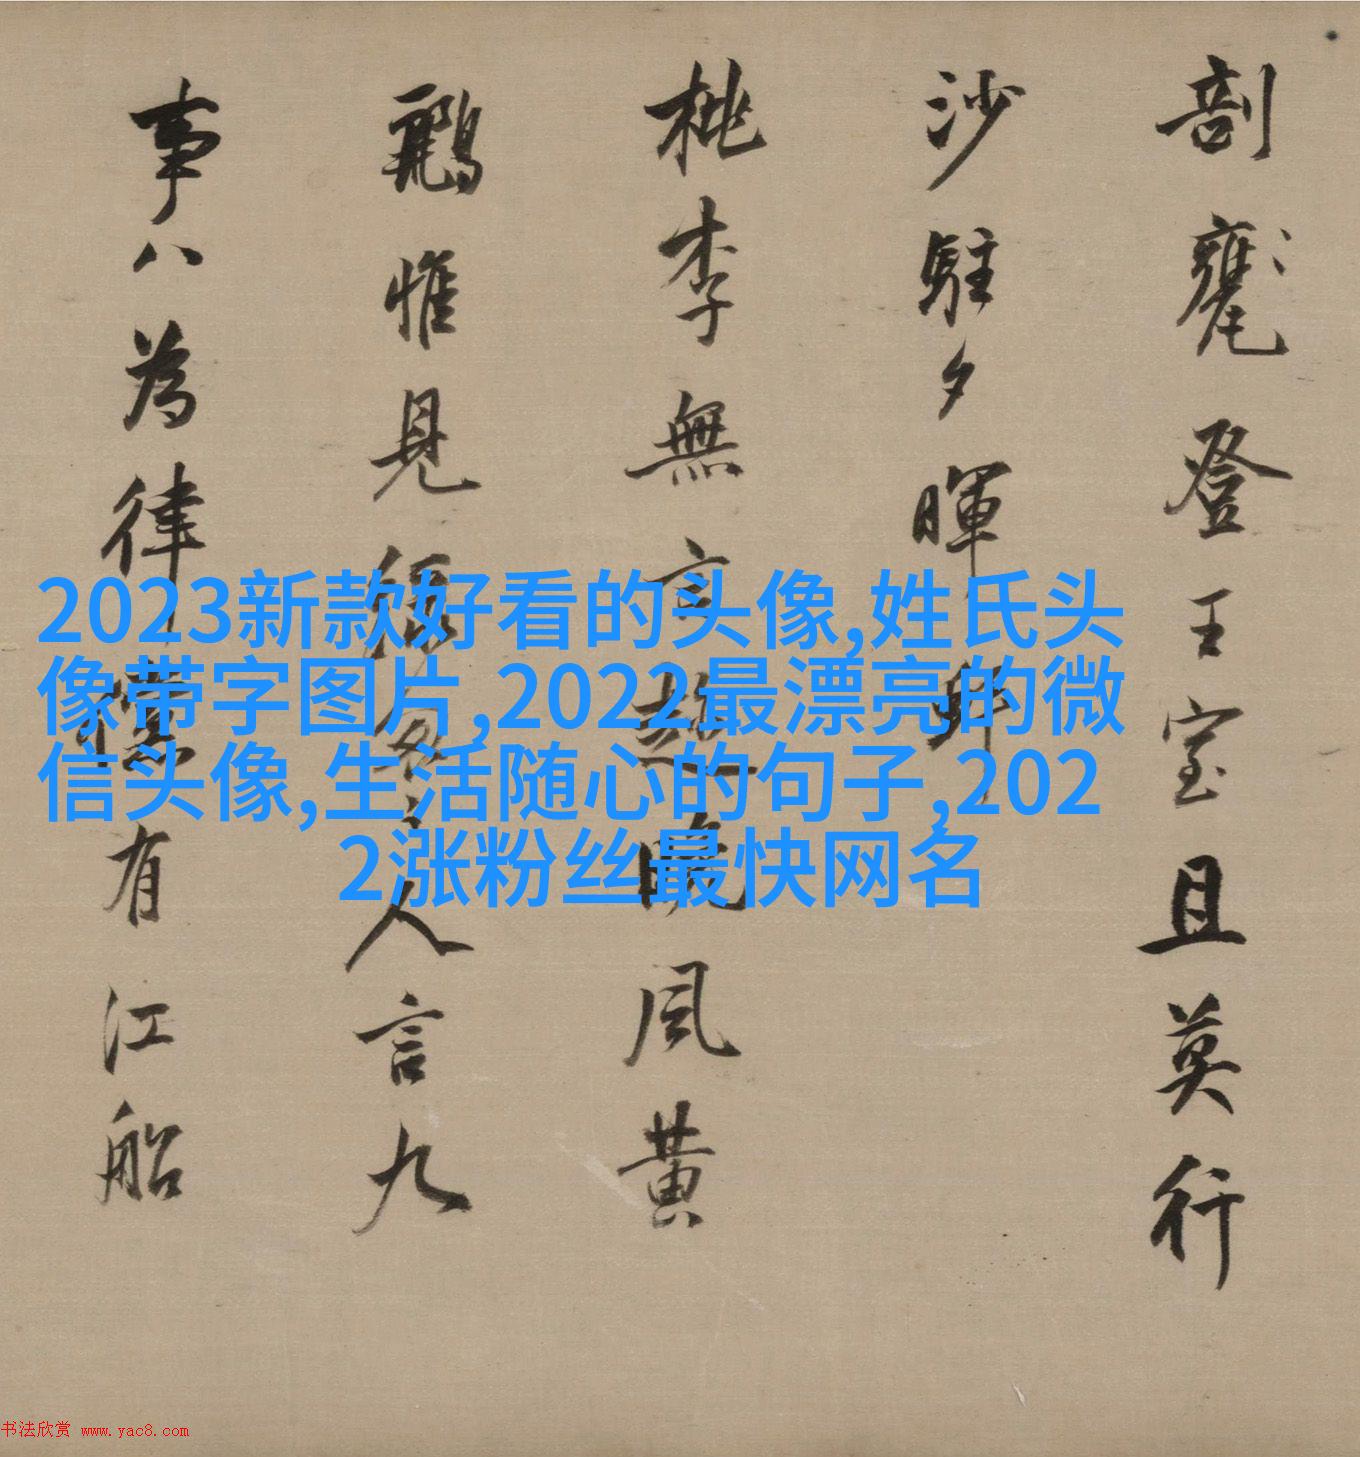 剖甕登王室且莫行
沙駐夕暉
桃李無言晚風黃
鸝惟見綠匆人言九
事八為律儻有江船
2023新款好看的头像,姓氏头
像带字图片,2022最漂亮的微
信头像,生活随心的句子,202
2涨粉丝最快网名
书法欣赏 www.yac8.com